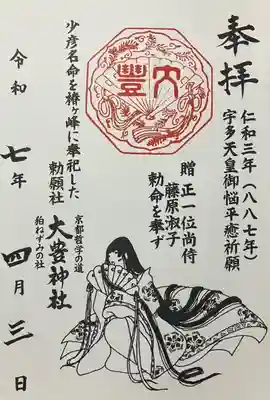 奉拝
仁和三年(八八七年)
宇多天皇御悩平癒祈願
大豊
贈正一位尚侍
藤原淑子
勅命を奉ず
少彦名命を椿ヶ峰に奉祀した
勅願社
京都哲学の道
大豊神社
狛ねずみの社
令和七年四月三日